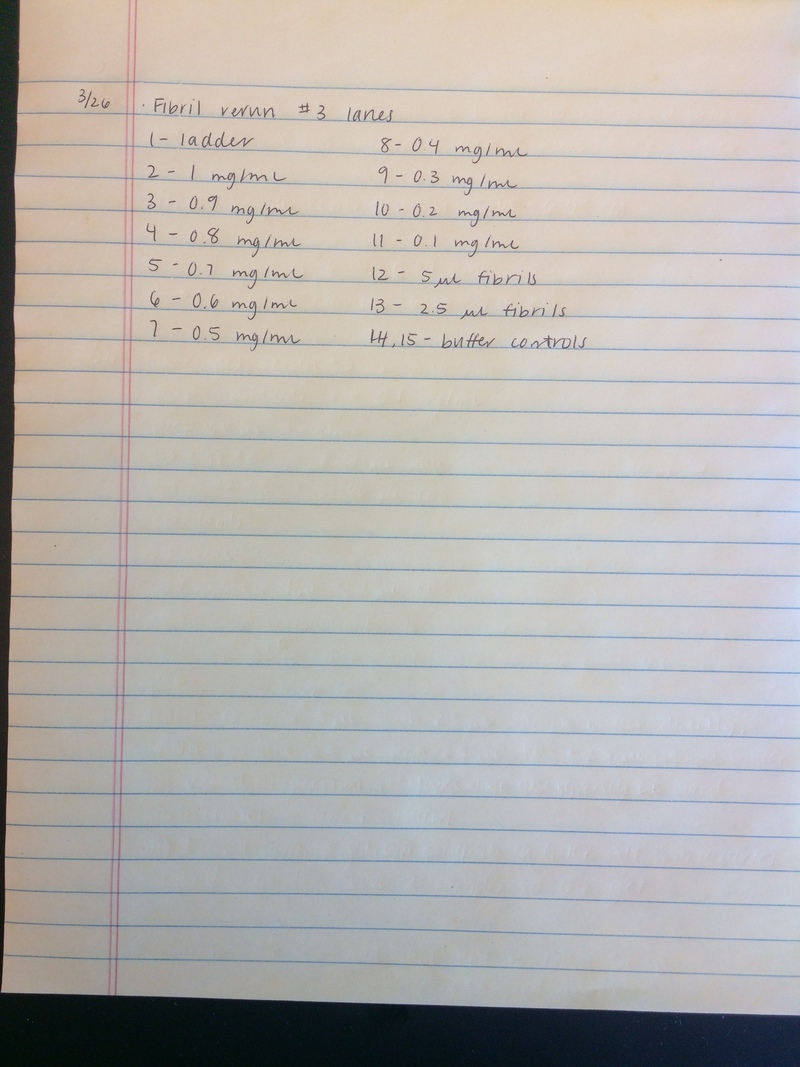 3/26 · Fibril rerun #3 lanes
1- ladder
2 - 1 mg/mL
3 - 0.9 mg/mL
4 - 0.8 mg/mL
5 - 0.7 mg/mL
6 - 0.6 mg/mL
7 - 0.5 mg/mL
8- 0.4 mg/mL
9 - 0.3 mg/mL
10 - 0.2 mg/mL
11 - 0.1 mg/mL
12 - 5 µL fibrils
13 - 2.5 µL fibrils
14,15 - buffer controls